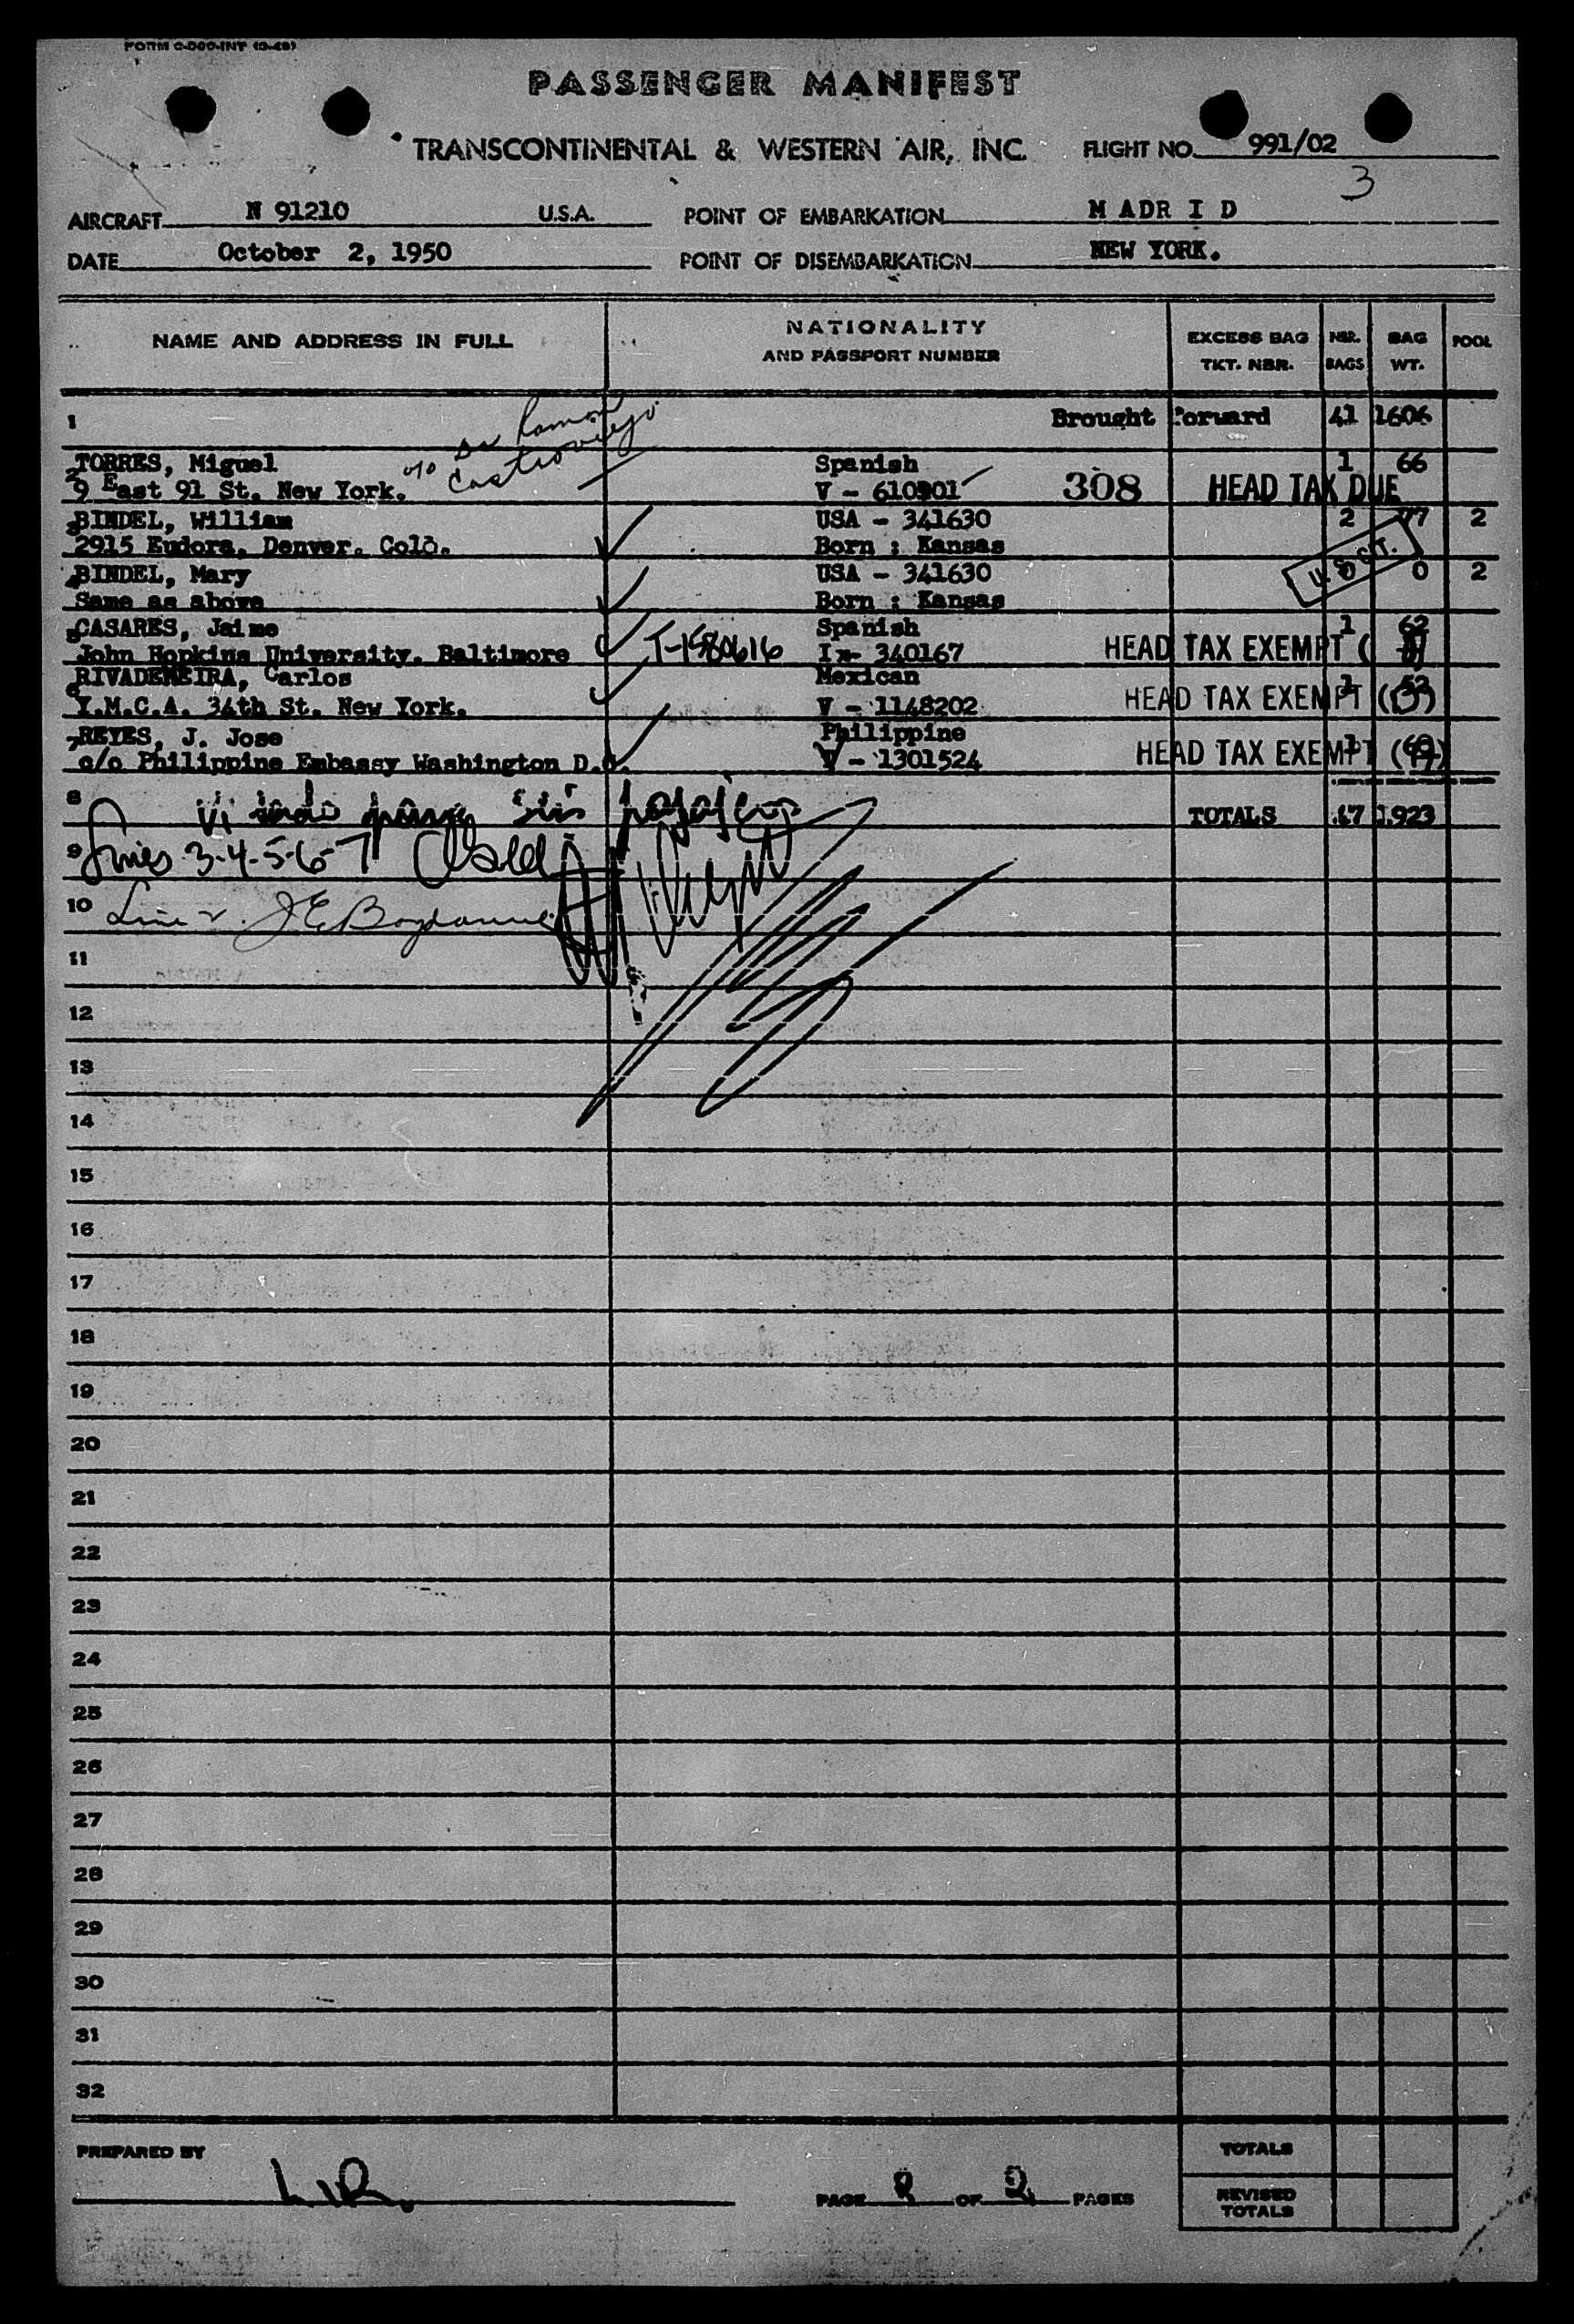 FORM
PASSENGER MANIFEST
TRANSCONTINENTAL & WESTERN AIR, INC.
FLIGHT NO. 991/02
3
AIRCRAFT N 91210 U.S.A.
POINT OF EMBARKATION M ADR I D
DATE October 2, 1950
POINT OF DISEMBARKATION NEW YORK.
NAME AND ADDRESS IN FULL
NATIONALITY
AND PASSPORT NUMBER
EXCESS BAG
TKT. NBR.
NBR.
BAGS
BAG
WT.
POOL
1 Brought forward 41 1606
c/o Dr Ramon
Castroviejo
2 TORRES, Miguel Spanish 1 66
9 East 91 St. New York. V - 610901 308 HEAD TAX DUE
3 BINDEL, William USA - 341630 2 77 2
2915 Eudora, Denver. Colo. Born : Kansas
BINDEL, Mary USA - 341630 0 0 2
Same as above Born : Kansas
U.S. CIT.
5 CASARES, Jaime Spanish 1 62
John Hopkins University. Baltimore T-1580616 I - 340167 HEAD TAX EXEMPT (
6 RIVADENEIRA, Carlos Mexican 1
Y.M.C.A. 34th St. New York. V - 1148202 HEAD TAX EXEMPT
7 REYES, J. Jose Philippine 1
c/o Philippine Embassy Washington D.C. V - 1301524 HEAD TAX EXEMPT
8 Visado para seis pasajeros TOTALS 47 1923
9 Lines 3-4-5-6-7
10 Line 2. J E
11
12
13
14
15
16
17
18
19
20
21
22
23
24
25
26
27
28
29
30
31
32
PREPARED BY
PAGE 2 OF 2 PAGES
TOTALS
REVISED
TOTALS